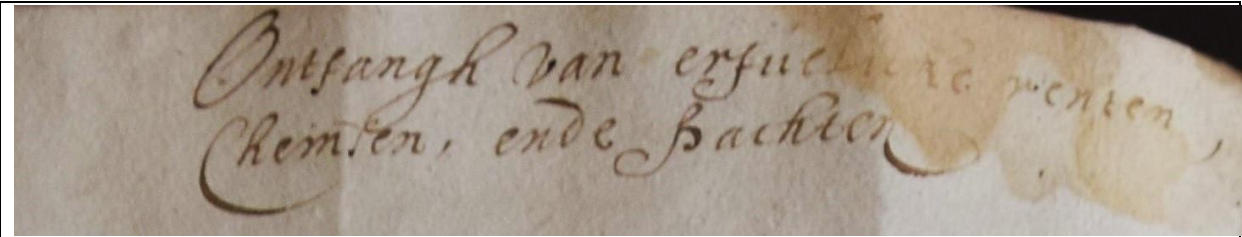 Ontfangh van erfuelicke renten,
Cheinsen, ende pachten